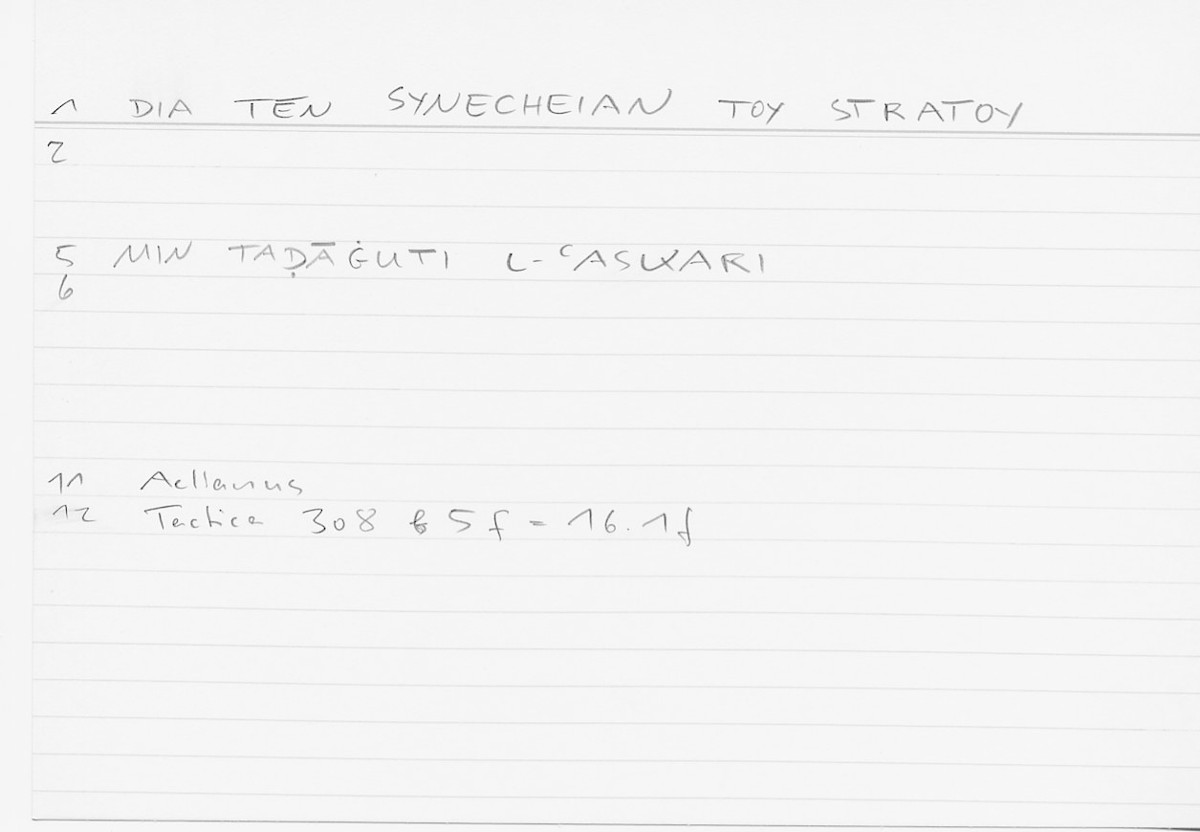 1 DIA TĒN SYNECHEIAN TOY STRATOY
2
5 MIN TAḌĀĠUTI L-ʿASKARI
6
11 Aelianus
12 Tactica 308 b 5 f = 16.1f